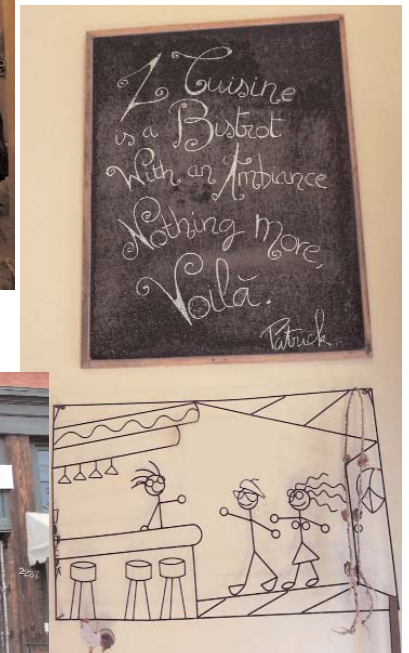 Z Cuisine
is a Bistrot
With an Ambiance
Nothing more,
Voilà.
Patrick